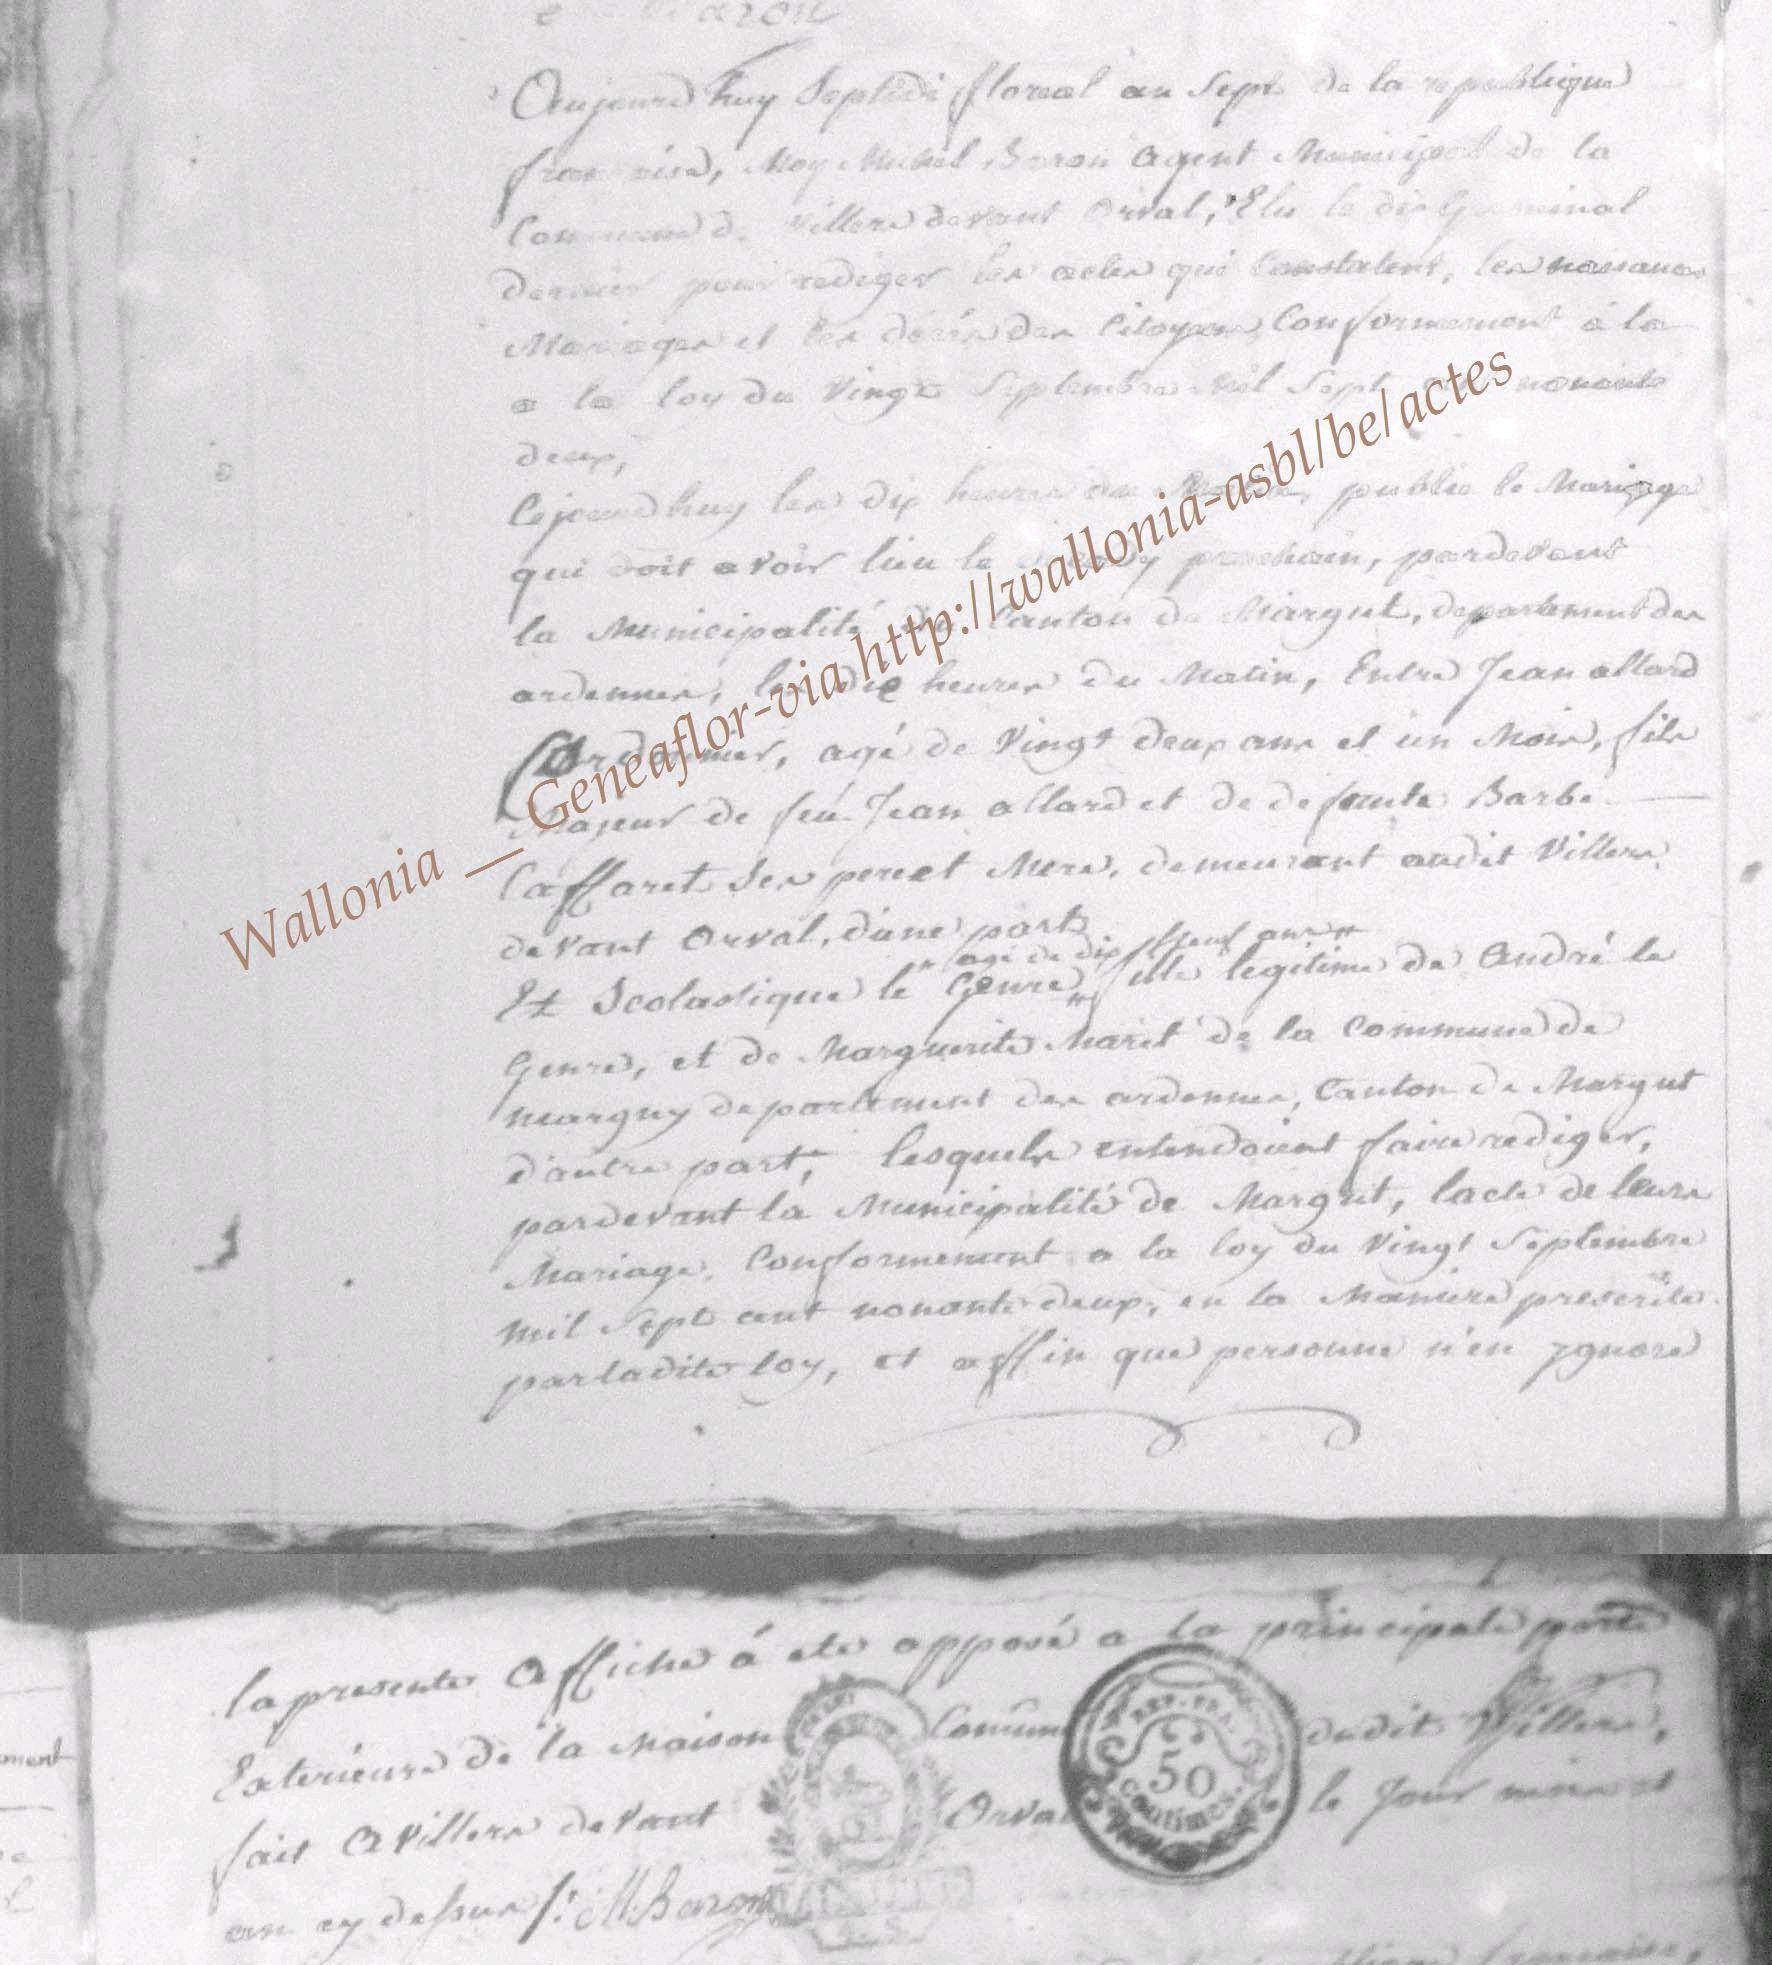 Baron
Aujourd huy Septidi floreal an Sept de la republique
francaise, Moy Michel Baron agent Municipal de la
Commune de Villers devant Orval, Elu le dix Germinal
dernier pour rediger les actes qui Constatent, les naissances
Mariages et les décés des Citoyens Conformement à la
a la loy du Vingt Septembre Mil Sept cent nonante
deux,
Cejourdhuy les dix heures du Matin, publié le Mariage
qui doit avoir lieu le prochain, pardevant
la Municipalité du Canton de Margut, departement des
ardennes, les dix heures du Matin, Entre Jean allard
Cordonnier, agé de Vingt deux ans et un Mois, fils
Majeur de feu Jean allard et de defunte Barbe
Caffaret Ses pere et Mere, demeurant audit Villers
devant Orval, d'une part
agé de dix Neuf ans
Et Scolastique le Genre fille legitime de André le
Genre, et de Marguerite Maret de la Commune de
margny departement des ardennes, Canton de Margut
d'autre part, lesquels entendoient faire rediger,
pardevant la Municipalité de Margut, lacte de leurs
Mariage, Conformement a la loy du Vingt Septembre
Mil Sept cent nonante deux, en la Maniere prescrite
par ladite loy, et affin que personne n'en ygnore
la presente affiche á ete apposé a la principale porte
Exterieure de la Maison Commune dudit Villers,
fait a Villers devant Orval le Jour mois et
an cy dessus s. M. Baron
REP. FRA.
50
centimes.
ment
Wallonia __ Geneaflor-via http://wallonia-asbl/be/actes